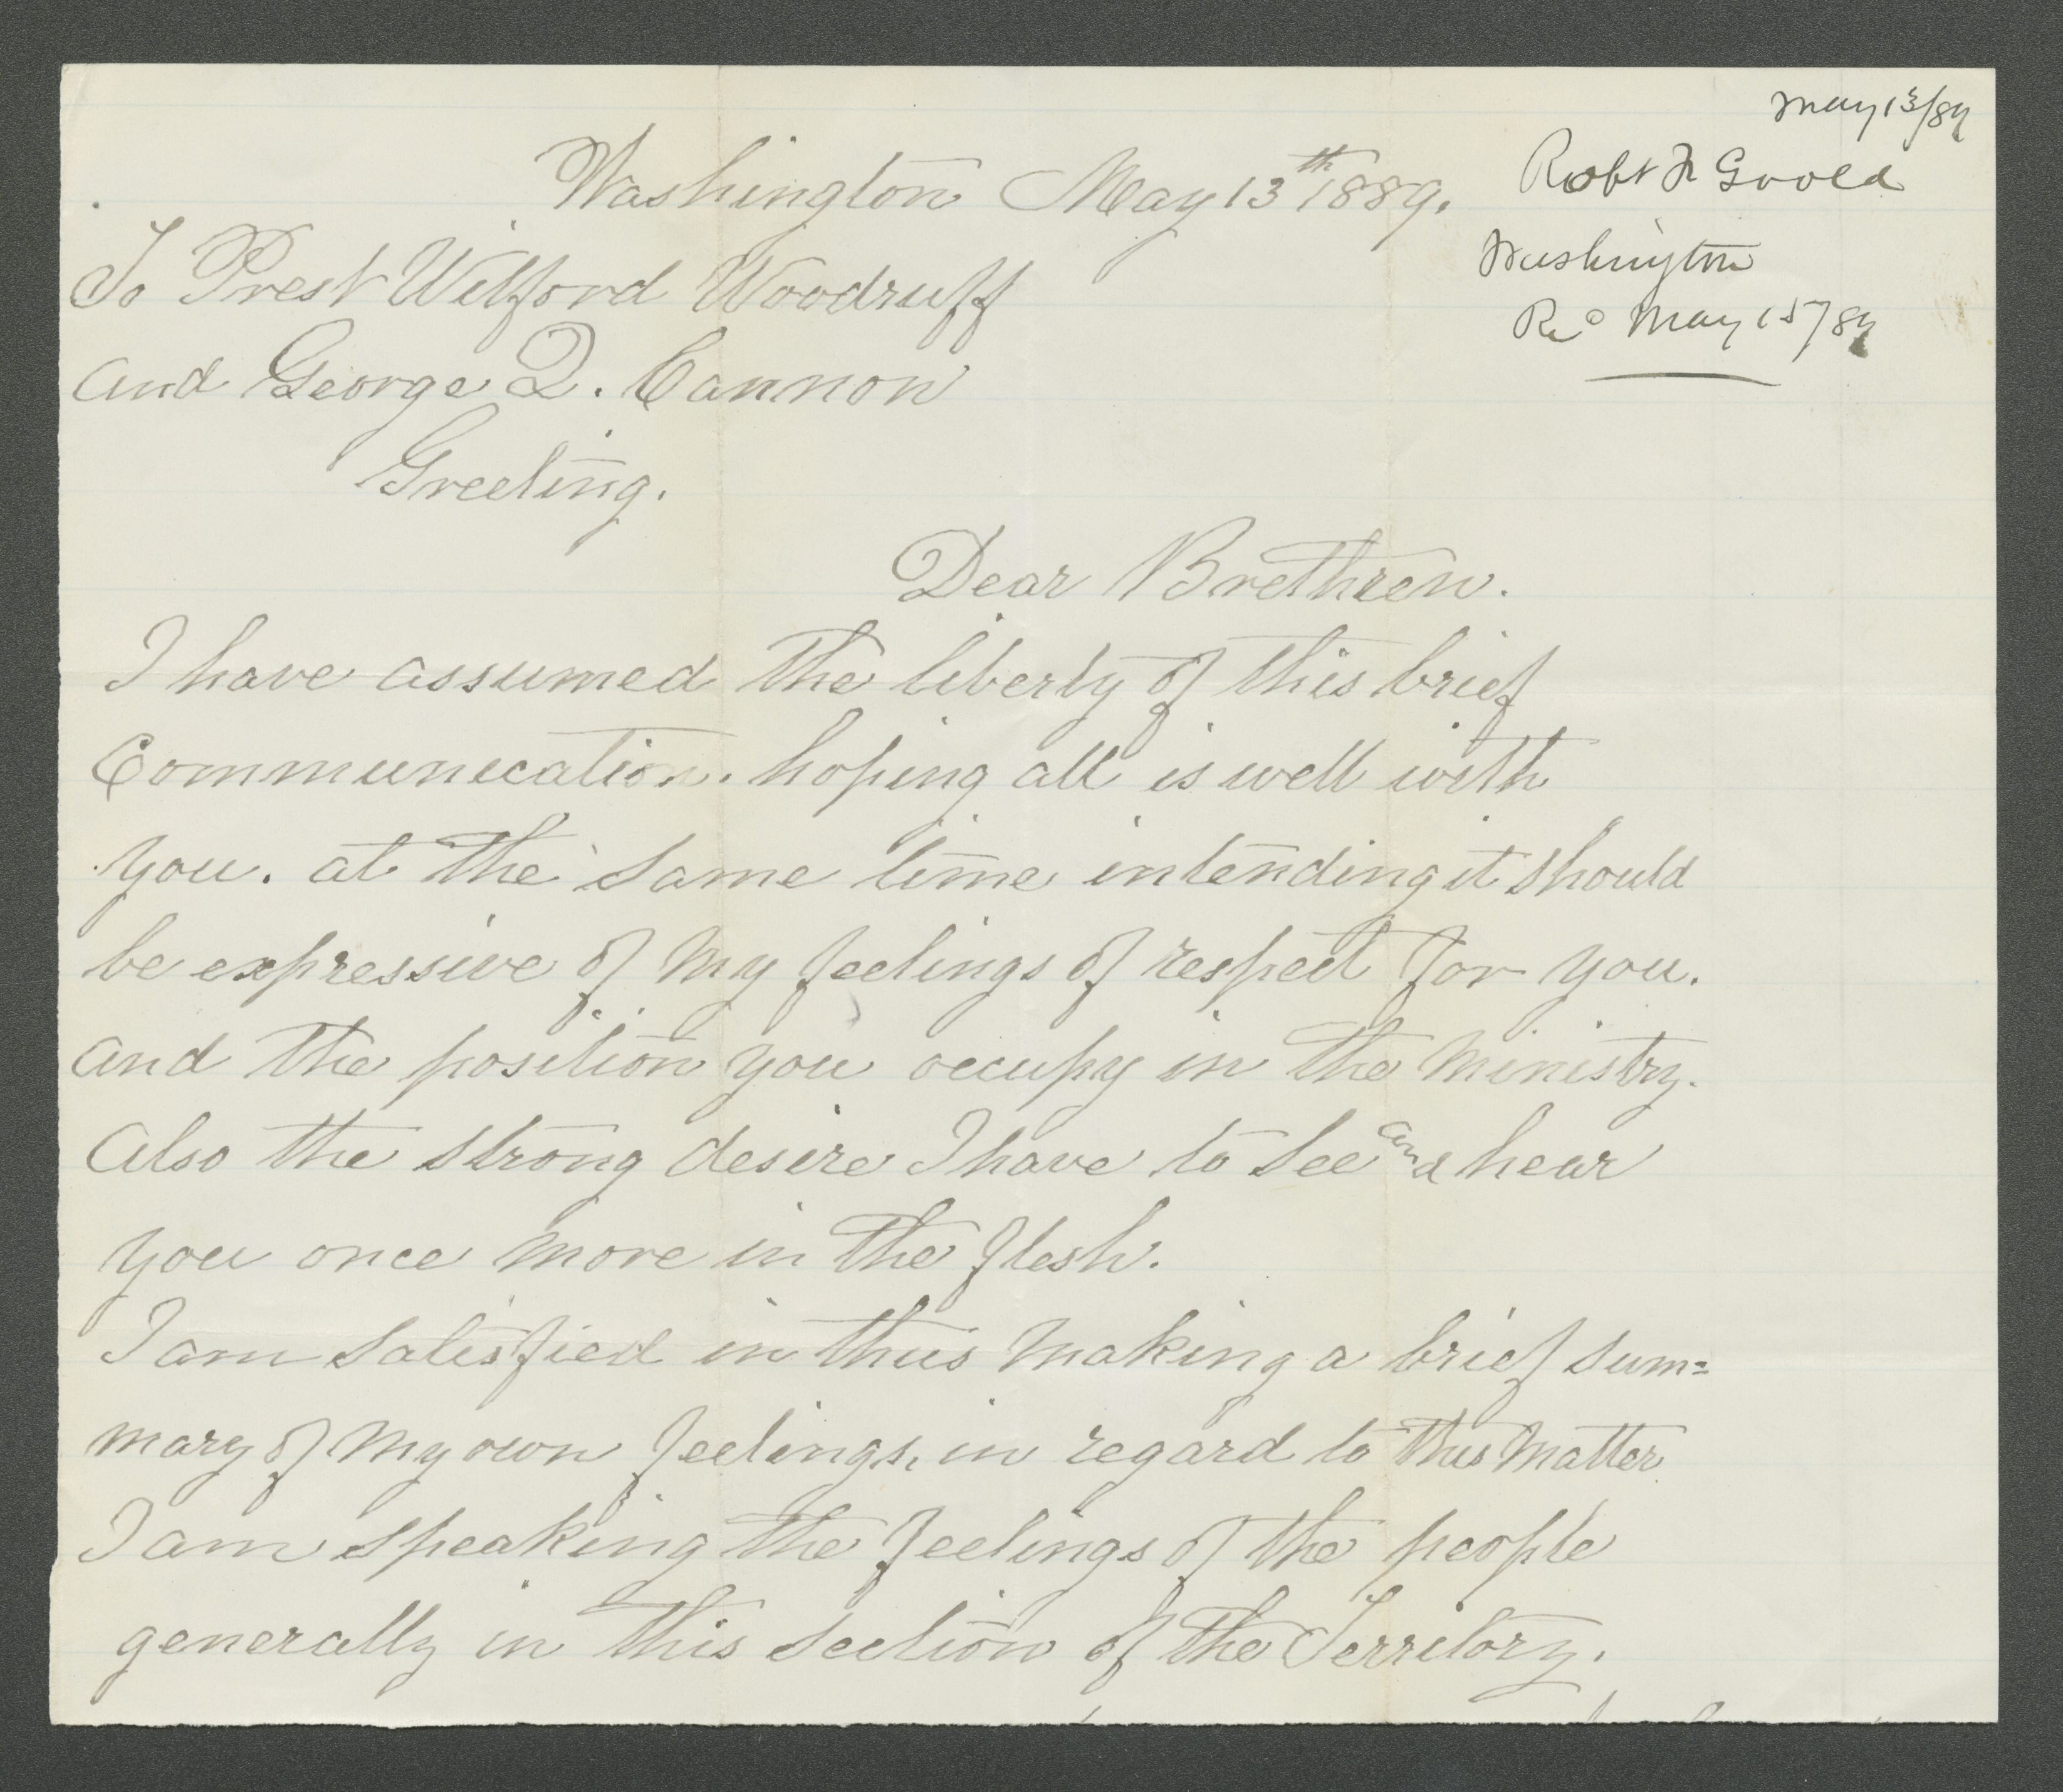 May 13/89
Robt F Goold
Washington
Recd May 15/89
Washington May 13th 1889.
To Prest Wilford Woodruff
and George Q. Cannon
Greeting.
Dear Brethren.
I have assumed the liberty of this brief
Communication. hoping all is well with
you. at the same time intending it should
be expressive of my feelings of respect for you.
and the position you occupy in the ministry.
Also the strong desire I have to see and hear
you once more in the flesh.
I am satisfied in thus making a brief sum=
mary of my own feelings, in regard to this matter
I am speaking the feelings of the people
generally in this section of the Territory.